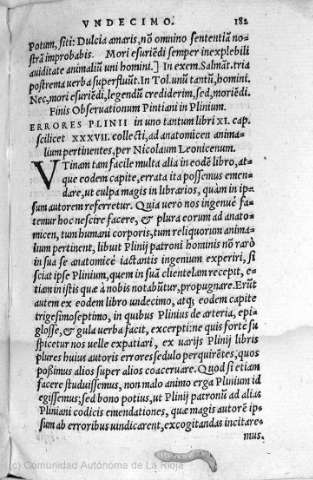 VNDECIMO. 182
Potum, siti: Dulcia amaris, nō omnino sententiā no-
strā improbabis. Mori esuriēdi semper inexplebili
auiditate animaliū uni homini.] In exem. Salmāt. tria
postrema uerba superfluūt. In Tol. unū tantū, homini.
Nec, mori esuriēdi, legendū crediderim, sed, moriēdi.
Finis Obseruationum Pintiani in Plinium.
ERRORES PLINII in uno tantum libri XI. cap.
scilicet XXXVII. collecti, ad anatomicen anima-
lium pertinentes, per Nicolaum Leonicenum.
VTinam tam facile multa alia in eodē libro, at-
que eodem capite, errata ita possemus emen-
dare, ut culpa magis in librarios, quàm in ip-
sum autorem referretur. Quia uerò nos ingenuè fa-
temur hoc nescire facere, & plura eorum ad anato-
micen, tum humani corporis, tum reliquorum anima-
lium pertinent, libuit Plinij patroni hominis nō rarò
in sua se anatomicē iactantis ingenium experiri, si
sciat ipse Plinium, quem in suā clientelam recepit, e-
tiam in istis quæ à nobis notabūtur, propugnare. Erūt
autem ex eodem libro undecimo, atq; eodem capite
trigesimoseptimo, in quibus Plinius de arteria, epi-
glosse, & gula uerba facit, excerpti: ne quis fortè su
spicetur nos uelle expatiari, ex uarijs Plinij libris
plures huius autoris errores sedulo perquirētes, quos
possimus alios super alios coaceruare. Quod si etiam
facere studuissemus, non malo animo erga Plinium id
egissemus; sed bono potius, ut Plinij patronū ad alias
Pliniani codicis emendationes, quæ magis autorē ip-
sum ab erroribus uindicarent, excogitandas incitare-
mus.
(c) Comunidad Autónoma de La Rioja